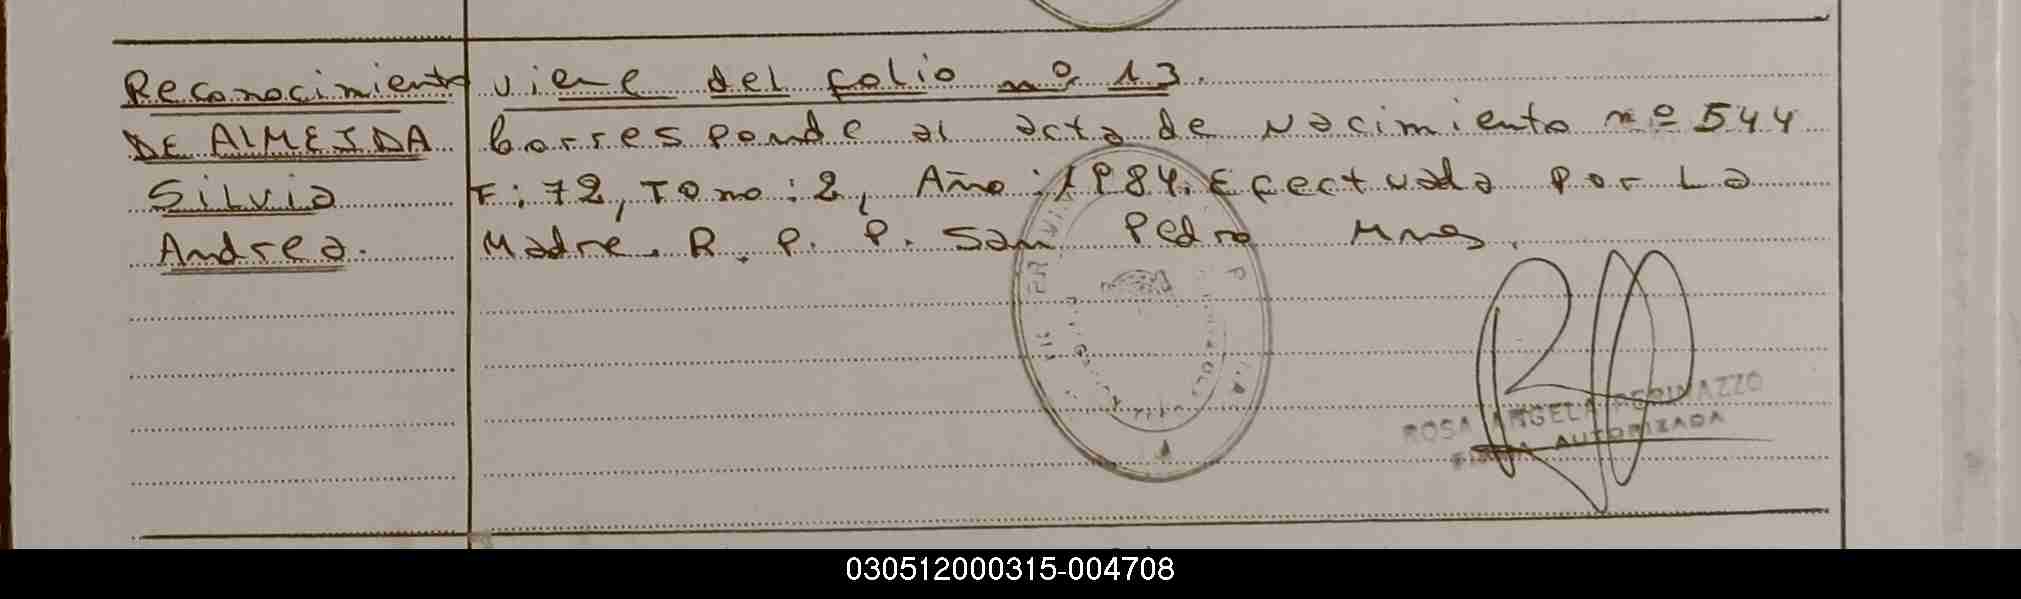 Reconocimiento
DE ALMEIDA
Silvia
Andrea.
viene del folio nº 13.
Corresponde al acta de Nacimiento nº 544
F: 72, Tomo: 2, Año: 1984. Efectuada por La
Madre. R. P. P. San Pedro Mnes.
ROSA ANGELA PERINAZZO
FIRMA AUTORIZADA
030512000315-004708